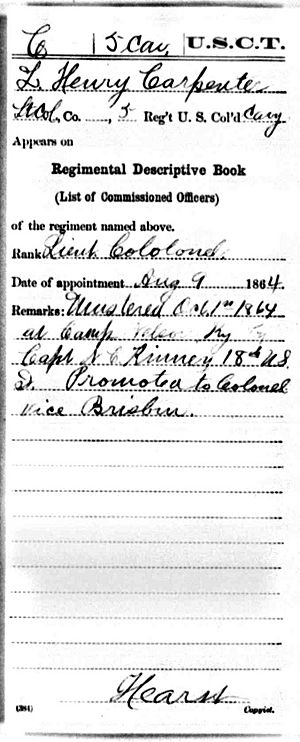 C | 5 Cav. | U.S.C.T.
L Henry Carpenter
Lt Col, Co. ......, 5 Reg't U. S. Col'd Cavy
Appears on
Regimental Descriptive Book
(List of Commissioned Officers)
of the regiment named above.
Rank Lieut Cololonel.
Date of appointment Aug 9 1864.
Remarks: Mustered Oct 1st 1864
at Camp Nelson Ky by
Capt N C Kinney 18th U.S.
I. Promoted to Colonel
vice Brisbin.
Hearst
(384) Copyist.